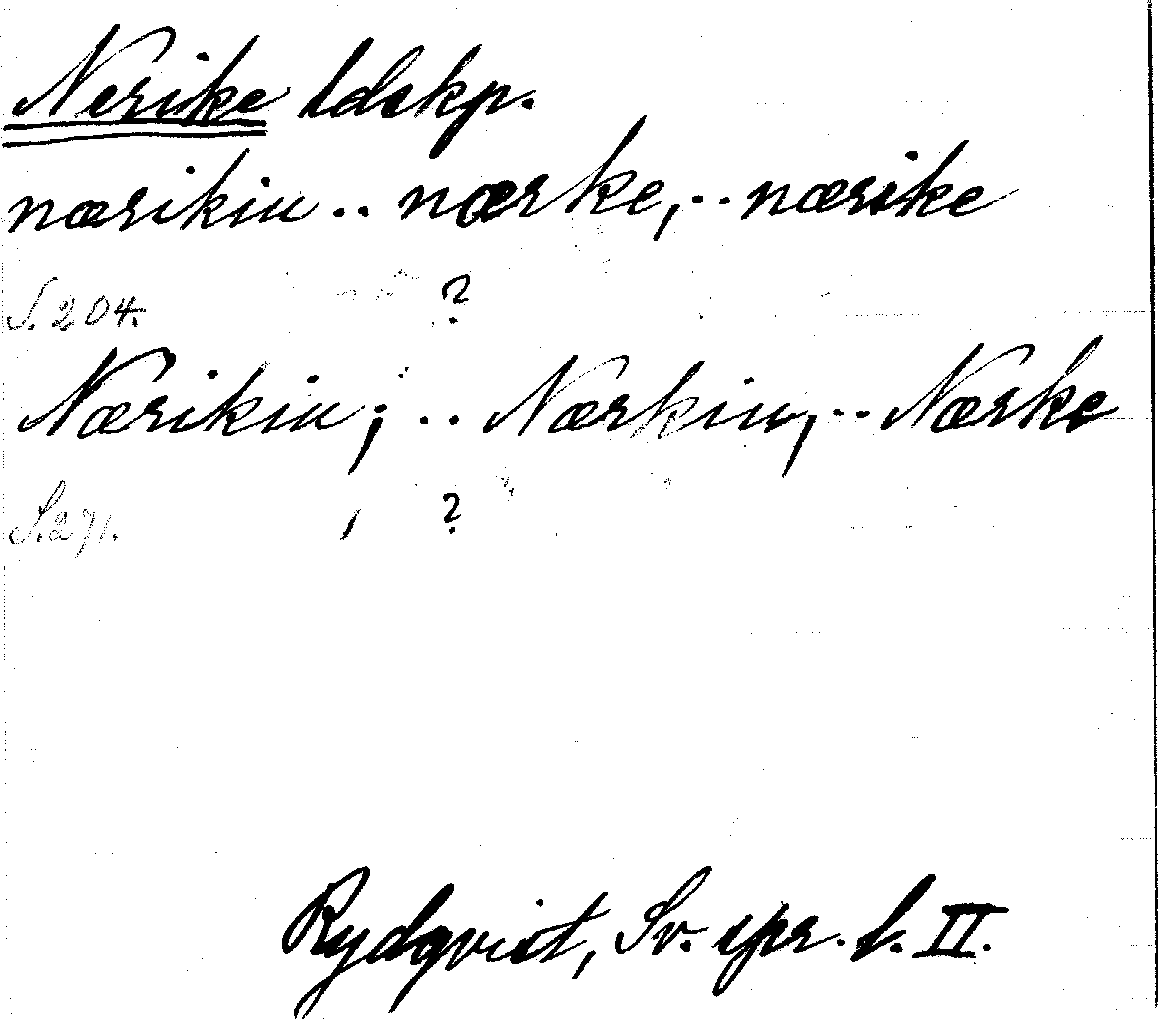 Nerike ldskp.
nærikiu .. nærke, .. nærike
S. 204. ?
Nærikiu; .. Nærkiu, .. Nærke
S. 271. ?
Rydqvist, Sv. spr. l. II.